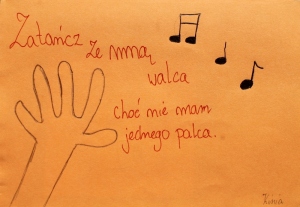 Zatańcz
ze mną
walca
Choć nie mam
jednego palca.